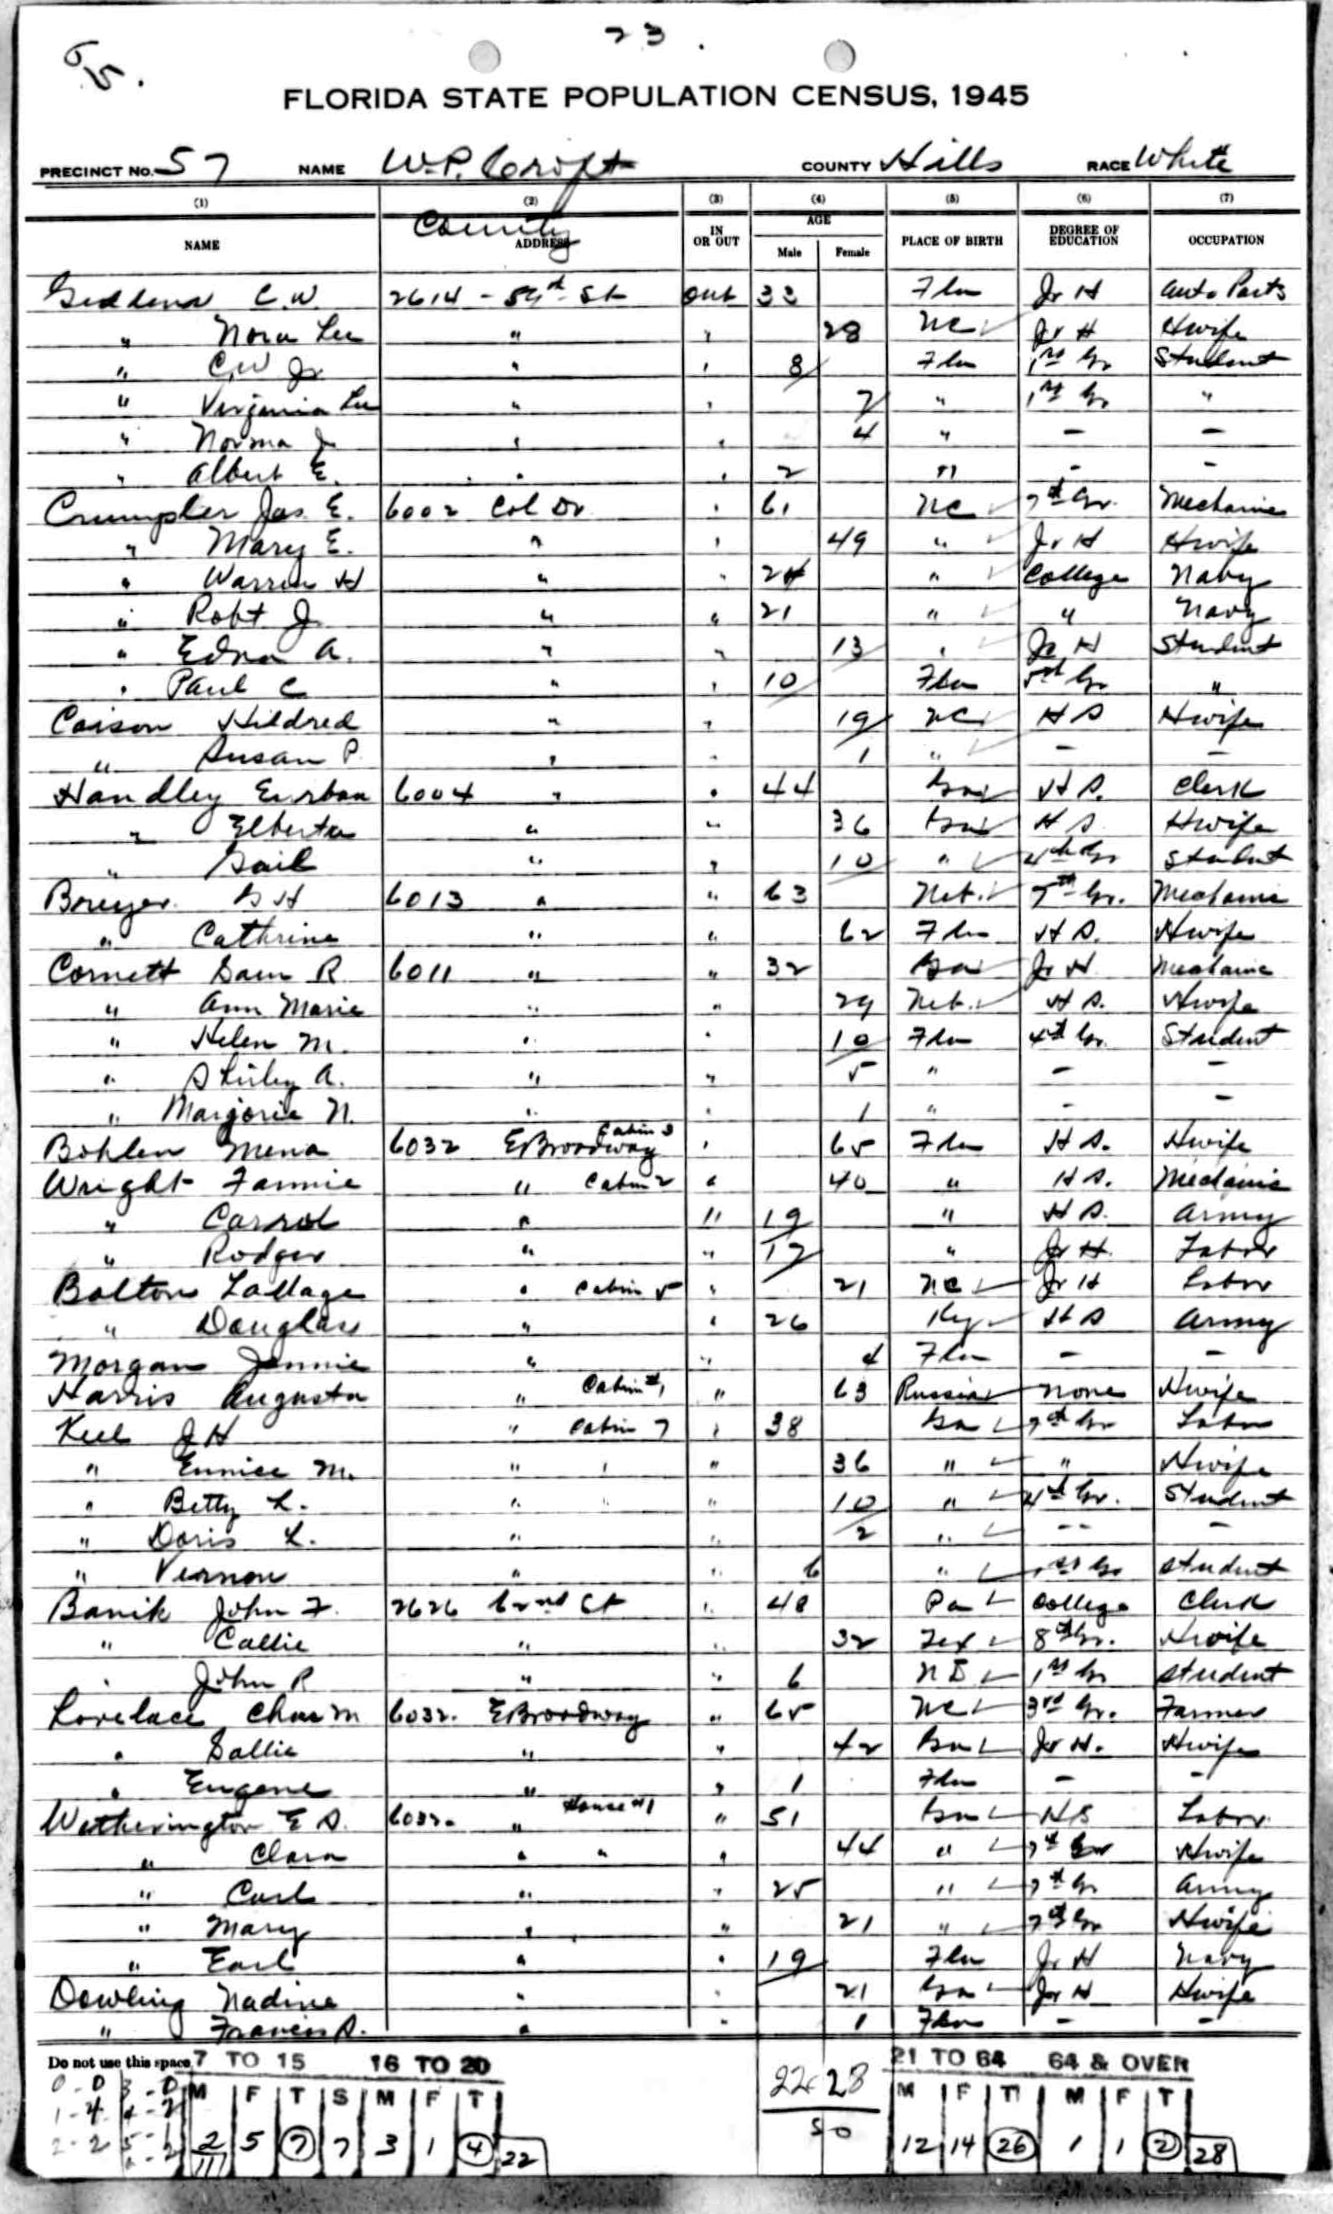 23.
55.
FLORIDA STATE POPULATION CENSUS, 1945
PRECINCT NO. 57 NAME W.P. Croft COUNTY Hills RACE White
(1) (2) (3) (4) (5) (6) (7)
County
NAME ADDRESS IN OR OUT AGE Male Female PLACE OF BIRTH DEGREE OF EDUCATION OCCUPATION
Giddens C.W. 2614 - 59th St out 33 Fla Jr H Auto Parts
" Nora Lee " " 28 NC Jr H Hwife
" CW Jr " " 8 Fla 1st Gr Student
" Virginia Lee " " 7 " 1st Gr "
" Norma J " " 4 " - -
" Albert E. " " 2 " - -
Crumpler Jas E. 6002 Col Dr " 61 NC 7th Gr. Mechanic
" Mary E. " " 49 " Jr H Hwife
" Warren H " " 24 " College Navy
" Robt J. " " 21 " " Navy
" Edna A. " " 13 " Jr H Student
" Paul C " " 10 Fla Gr "
Caison Hildred " " 19 NC H S Hwife
" Susan P. " " 1 " - -
Handley 6004 " " 44 Ga H S. Clerk
" Elberta " " 36 Ga H S Hwife
" Gail " " 10 " 4th Gr Student
G H 6013 " " 63 Neb. 7th Gr. Mechanic
" Cathrine " " 62 Fla H S. Hwife
Cornett Sam R 6011 " " 32 Ga Jr H Mechanic
" Ann Marie " " 29 Neb. H S. Hwife
" Helen M. " " 10 Fla 4th Gr. Student
" Shirley A. " " 5 " - -
" Marjorie N. " " 1 " - -
Bohlen Mena 6032 E Broadway Cabin 3 " 65 Fla H S. Hwife
Wright Fannie " Cabin 2 " 40 " H S. Mechanic
" Carrol " " 19 " H S. Army
" Rodger " " 17 " Jr H. Labor
Bolton " Cabin 5 " 21 NC Jr H Labor
" Douglas " " 26 Ky H S Army
Morgan Jennie " " 4 Fla - -
Harris Augusta " Cabin #1 " 63 Russia none Hwife
Keel J H " Cabin 7 " 38 Ga 7th Gr Labor
" Eunice M. " " " 36 " " Hwife
" Betty L. " " " 10 " 4th Gr. Student
" Doris L. " " 2 " -- -
" Vernon " " 6 " 1st Gr Student
Banik John F. 2626 62nd St " 48 Pa College Clerk
" Callie " " 32 Tex 8th Gr. Hwife
" John R " " 6 1st Gr Student
Lovelace Chas M 6032. E Broadway " 65 NC 3rd Gr. Farmer
" Sallie " " 42 Ga Jr H. Hwife
" Eugene " " 1 Fla - -
Wetherington E S. 6032. " House #1 " 51 Ga HS Labor
" Clara " " " 44 " 7th Gr Hwife
" Carl " " 25 " 7th Gr Army
" Mary " " 21 " 7th Gr Hwife
" Earl " " 19 Fla Jr H Navy
Dowling Nadine " " 21 Ga Jr H Hwife
" Francis S. " " 1 Fla - -
Do not use this space 7 TO 15 16 TO 20 22 28 21 TO 64 64 & OVER
0-0 3-0 M F T S M F T M F T M F T
1-4 4-2 50
2-2 5-1 2 5 7 7 3 1 4 22 12 14 26 1 1 2 28
6-2